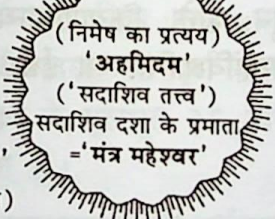 (निमेष का प्रत्यय)
‘अहमिदम’
(‘सदाशिव तत्त्व’)
सदाशिव दशा के प्रमाता
=‘मंत्र महेश्वर’
,
)